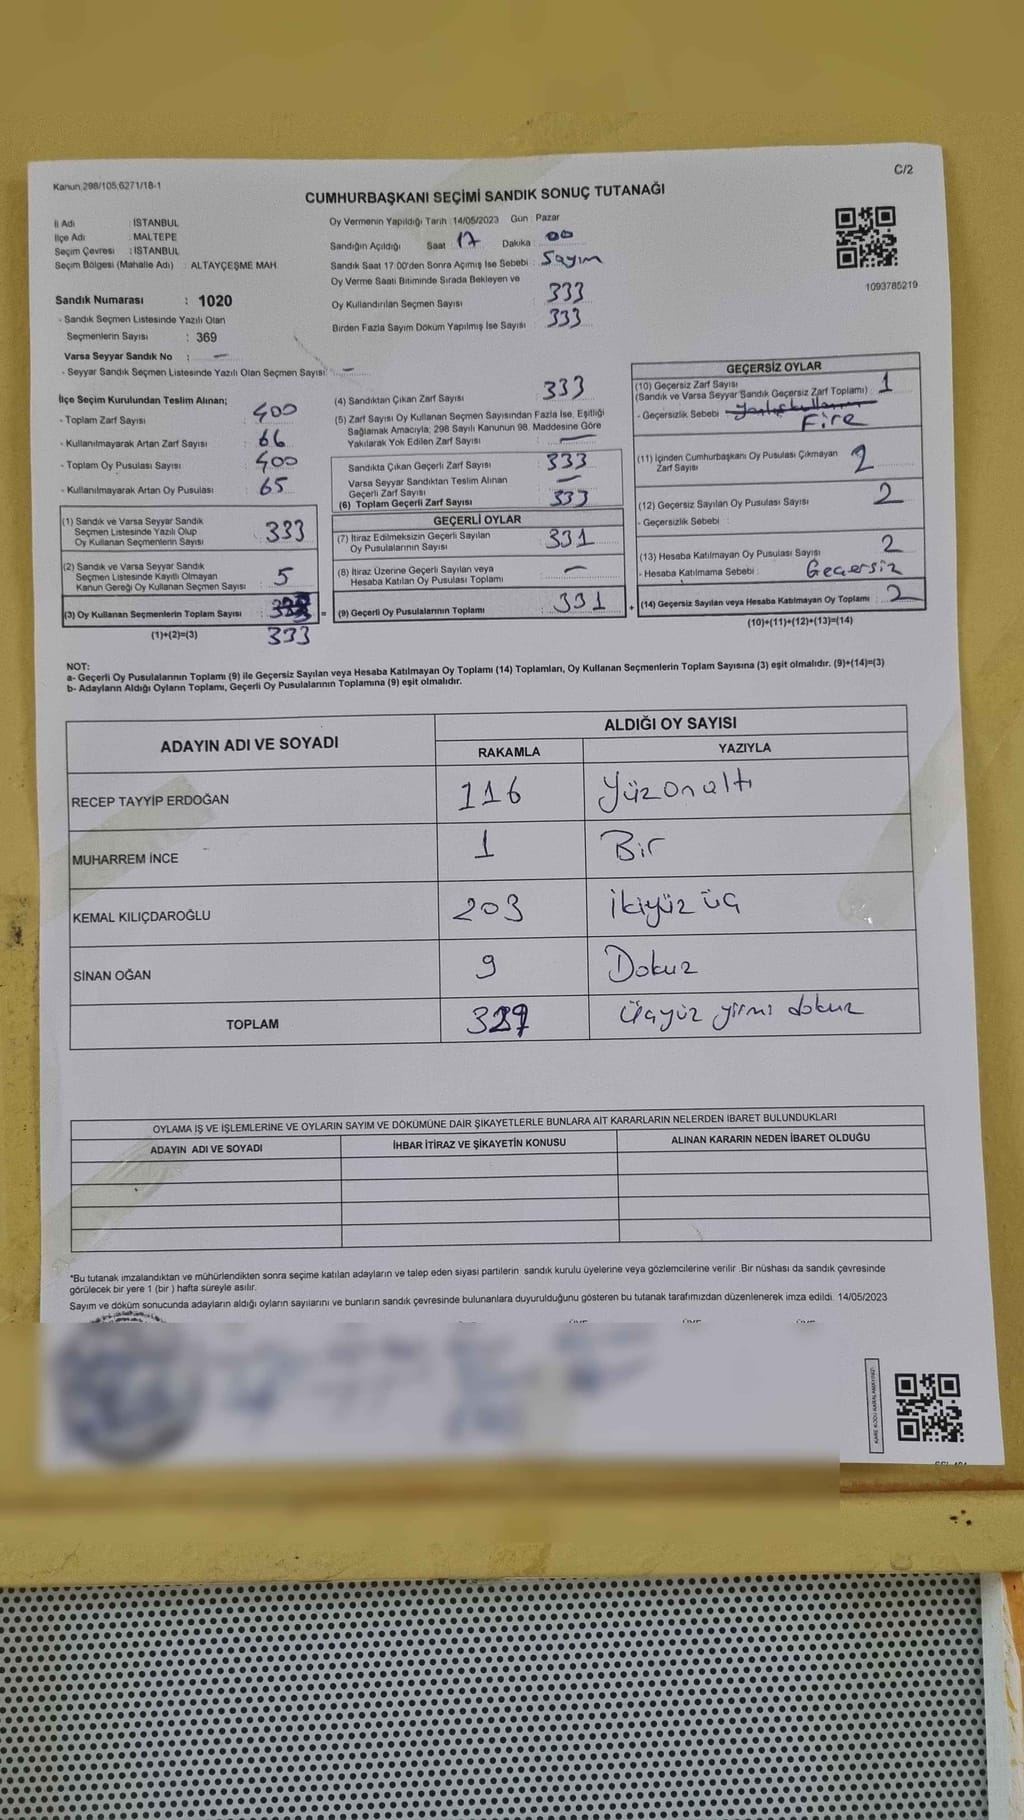 Kanun,298/105,6271/18-1
C/2
CUMHURBAŞKANI SEÇİMİ SANDIK SONUÇ TUTANAĞI
İl Adı : İSTANBUL
İlçe Adı : MALTEPE
Seçim Çevresi : İSTANBUL
Seçim Bölgesi (Mahalle Adı) : ALTAYÇEŞME MAH.
Sandık Numarası : 1020
- Sandık Seçmen Listesinde Yazılı Olan
Seçmenlerin Sayısı : 369
Varsa Seyyar Sandık No : -
- Seyyar Sandık Seçmen Listesinde Yazılı Olan Seçmen Sayısı: -
Oy Vermenin Yapıldığı Tarih :14/05/2023 Gün : Pazar
Sandığın Açıldığı Saat : 17 Dakika : 00
Sandık Saat 17:00'den Sonra Açımış İse Sebebi : Sayım
Oy Verme Saati Bitiminde Sırada Bekleyen ve
Oy Kullandırılan Seçmen Sayısı : 333
Birden Fazla Sayım Döküm Yapılmış İse Sayısı : 333
1093785219
İlçe Seçim Kurulundan Teslim Alınan;
- Toplam Zarf Sayısı : 400
- Kullanılmayarak Artan Zarf Sayısı : 66
- Toplam Oy Pusulası Sayısı : 400
- Kullanılmayarak Artan Oy Pusulası : 65
(1) Sandık ve Varsa Seyyar Sandık
Seçmen Listesinde Yazılı Olup
Oy Kullanan Seçmenlerin Sayısı : 333
(2) Sandık ve Varsa Seyyar Sandık
Seçmen Listesinde Kayıtlı Olmayan
Kanun Gereği Oy Kullanan Seçmen Sayısı : 5
(3) Oy Kullanan Seçmenlerin Toplam Sayısı : =
(1)+(2)=(3) 333
(4) Sandıktan Çıkan Zarf Sayısı : 333
(5) Zarf Sayısı Oy Kullanan Seçmen Sayısından Fazla İse, Eşitliği
Sağlamak Amacıyla; 298 Sayılı Kanunun 98. Maddesine Göre
Yakılarak Yok Edilen Zarf Sayısı : -
Sandıkta Çıkan Geçerli Zarf Sayısı : 333
Varsa Seyyar Sandıktan Teslim Alınan
Geçerli Zarf Sayısı : -
(6) Toplam Geçerli Zarf Sayısı : 333
GEÇERLİ OYLAR
(7) İtiraz Edilmeksizin Geçerli Sayılan
Oy Pusulalarının Sayısı : 331
(8) İtiraz Üzerine Geçerli Sayılan veya
Hesaba Katılan Oy Pusulası Toplamı : -
(9) Geçerli Oy Pusulalarının Toplamı : 331 +
GEÇERSİZ OYLAR
(10) Geçersiz Zarf Sayısı
(Sandık ve Varsa Seyyar Sandık Geçersiz Zarf Toplamı) : 1
- Geçersizlik Sebebi :
Fire
(11) İçinden Cumhurbaşkanı Oy Pusulası Çıkmayan
Zarf Sayısı : 2
(12) Geçersiz Sayılan Oy Pusulası Sayısı : 2
- Geçersizlik Sebebi :
(13) Hesaba Katılmayan Oy Pusulası Sayısı : 2
- Hesaba Katılmama Sebebi : Geçersiz
(14) Geçersiz Sayılan veya Hesaba Katılmayan Oy Toplamı : 2
(10)+(11)+(12)+(13)=(14)
NOT:
a- Geçerli Oy Pusulalarının Toplamı (9) ile Geçersiz Sayılan veya Hesaba Katılmayan Oy Toplamı (14) Toplamları, Oy Kullanan Seçmenlerin Toplam Sayısına (3) eşit olmalıdır. (9)+(14)=(3)
b- Adayların Aldığı Oyların Toplamı, Geçerli Oy Pusulalarının Toplamına (9) eşit olmalıdır.
ADAYIN ADI VE SOYADI ALDIĞI OY SAYISI
RAKAMLA YAZIYLA
RECEP TAYYİP ERDOĞAN 116 Yüzonaltı
MUHARREM İNCE 1 Bir
KEMAL KILIÇDAROĞLU 203 İkiyüz üç
SİNAN OĞAN 9 Dokuz
TOPLAM 329 Üçyüz yirmi dokuz
OYLAMA İŞ VE İŞLEMLERİNE VE OYLARIN SAYIM VE DÖKÜMÜNE DAİR ŞİKAYETLERLE BUNLARA AİT KARARLARIN NELERDEN İBARET BULUNDUKLARI
ADAYIN ADI VE SOYADI İHBAR İTİRAZ VE ŞİKAYETİN KONUSU ALINAN KARARIN NEDEN İBARET OLDUĞU
*Bu tutanak imzalandıktan ve mühürlendikten sonra seçime katılan adayların ve talep eden siyasi partilerin sandık kurulu üyelerine veya gözlemcilerine verilir .Bir nüshası da sandık çevresinde
görülecek bir yere 1 (bir ) hafta süreyle asılır.
Sayım ve döküm sonucunda adayların aldığı oyların sayılarını ve bunların sandık çevresinde bulunanlara duyurulduğunu gösteren bu tutanak tarafımızdan düzenlenerek imza edildi. 14/05/2023